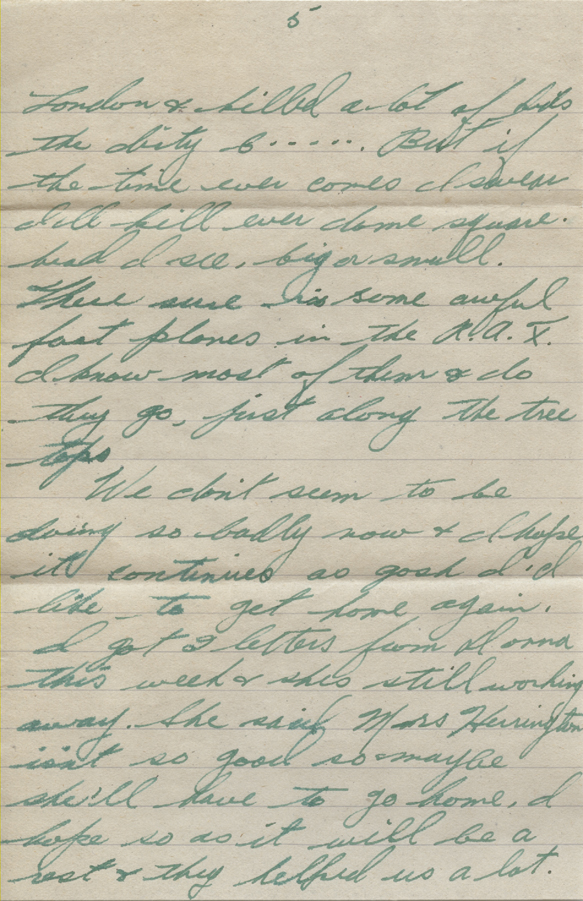 5
London & killed a lot of kids
the dirty b...... But if
the time ever comes I swear
I'll kill ever dame square-
head I see, big or small.
There sure is some awful
fast planes in the R.A.F.
I know most of them & do
they go, just along the tree
tops
We don't seem to be
doing so badly now & I hope
it continues as gosh I'd
like to get home again.
I got 2 letters from Norma
this week & shes still working
away. She said Mrs Herrington
isn't so good so maybe
she'll have to go home. I
hope so as it will be a
rest & they helped us a lot.